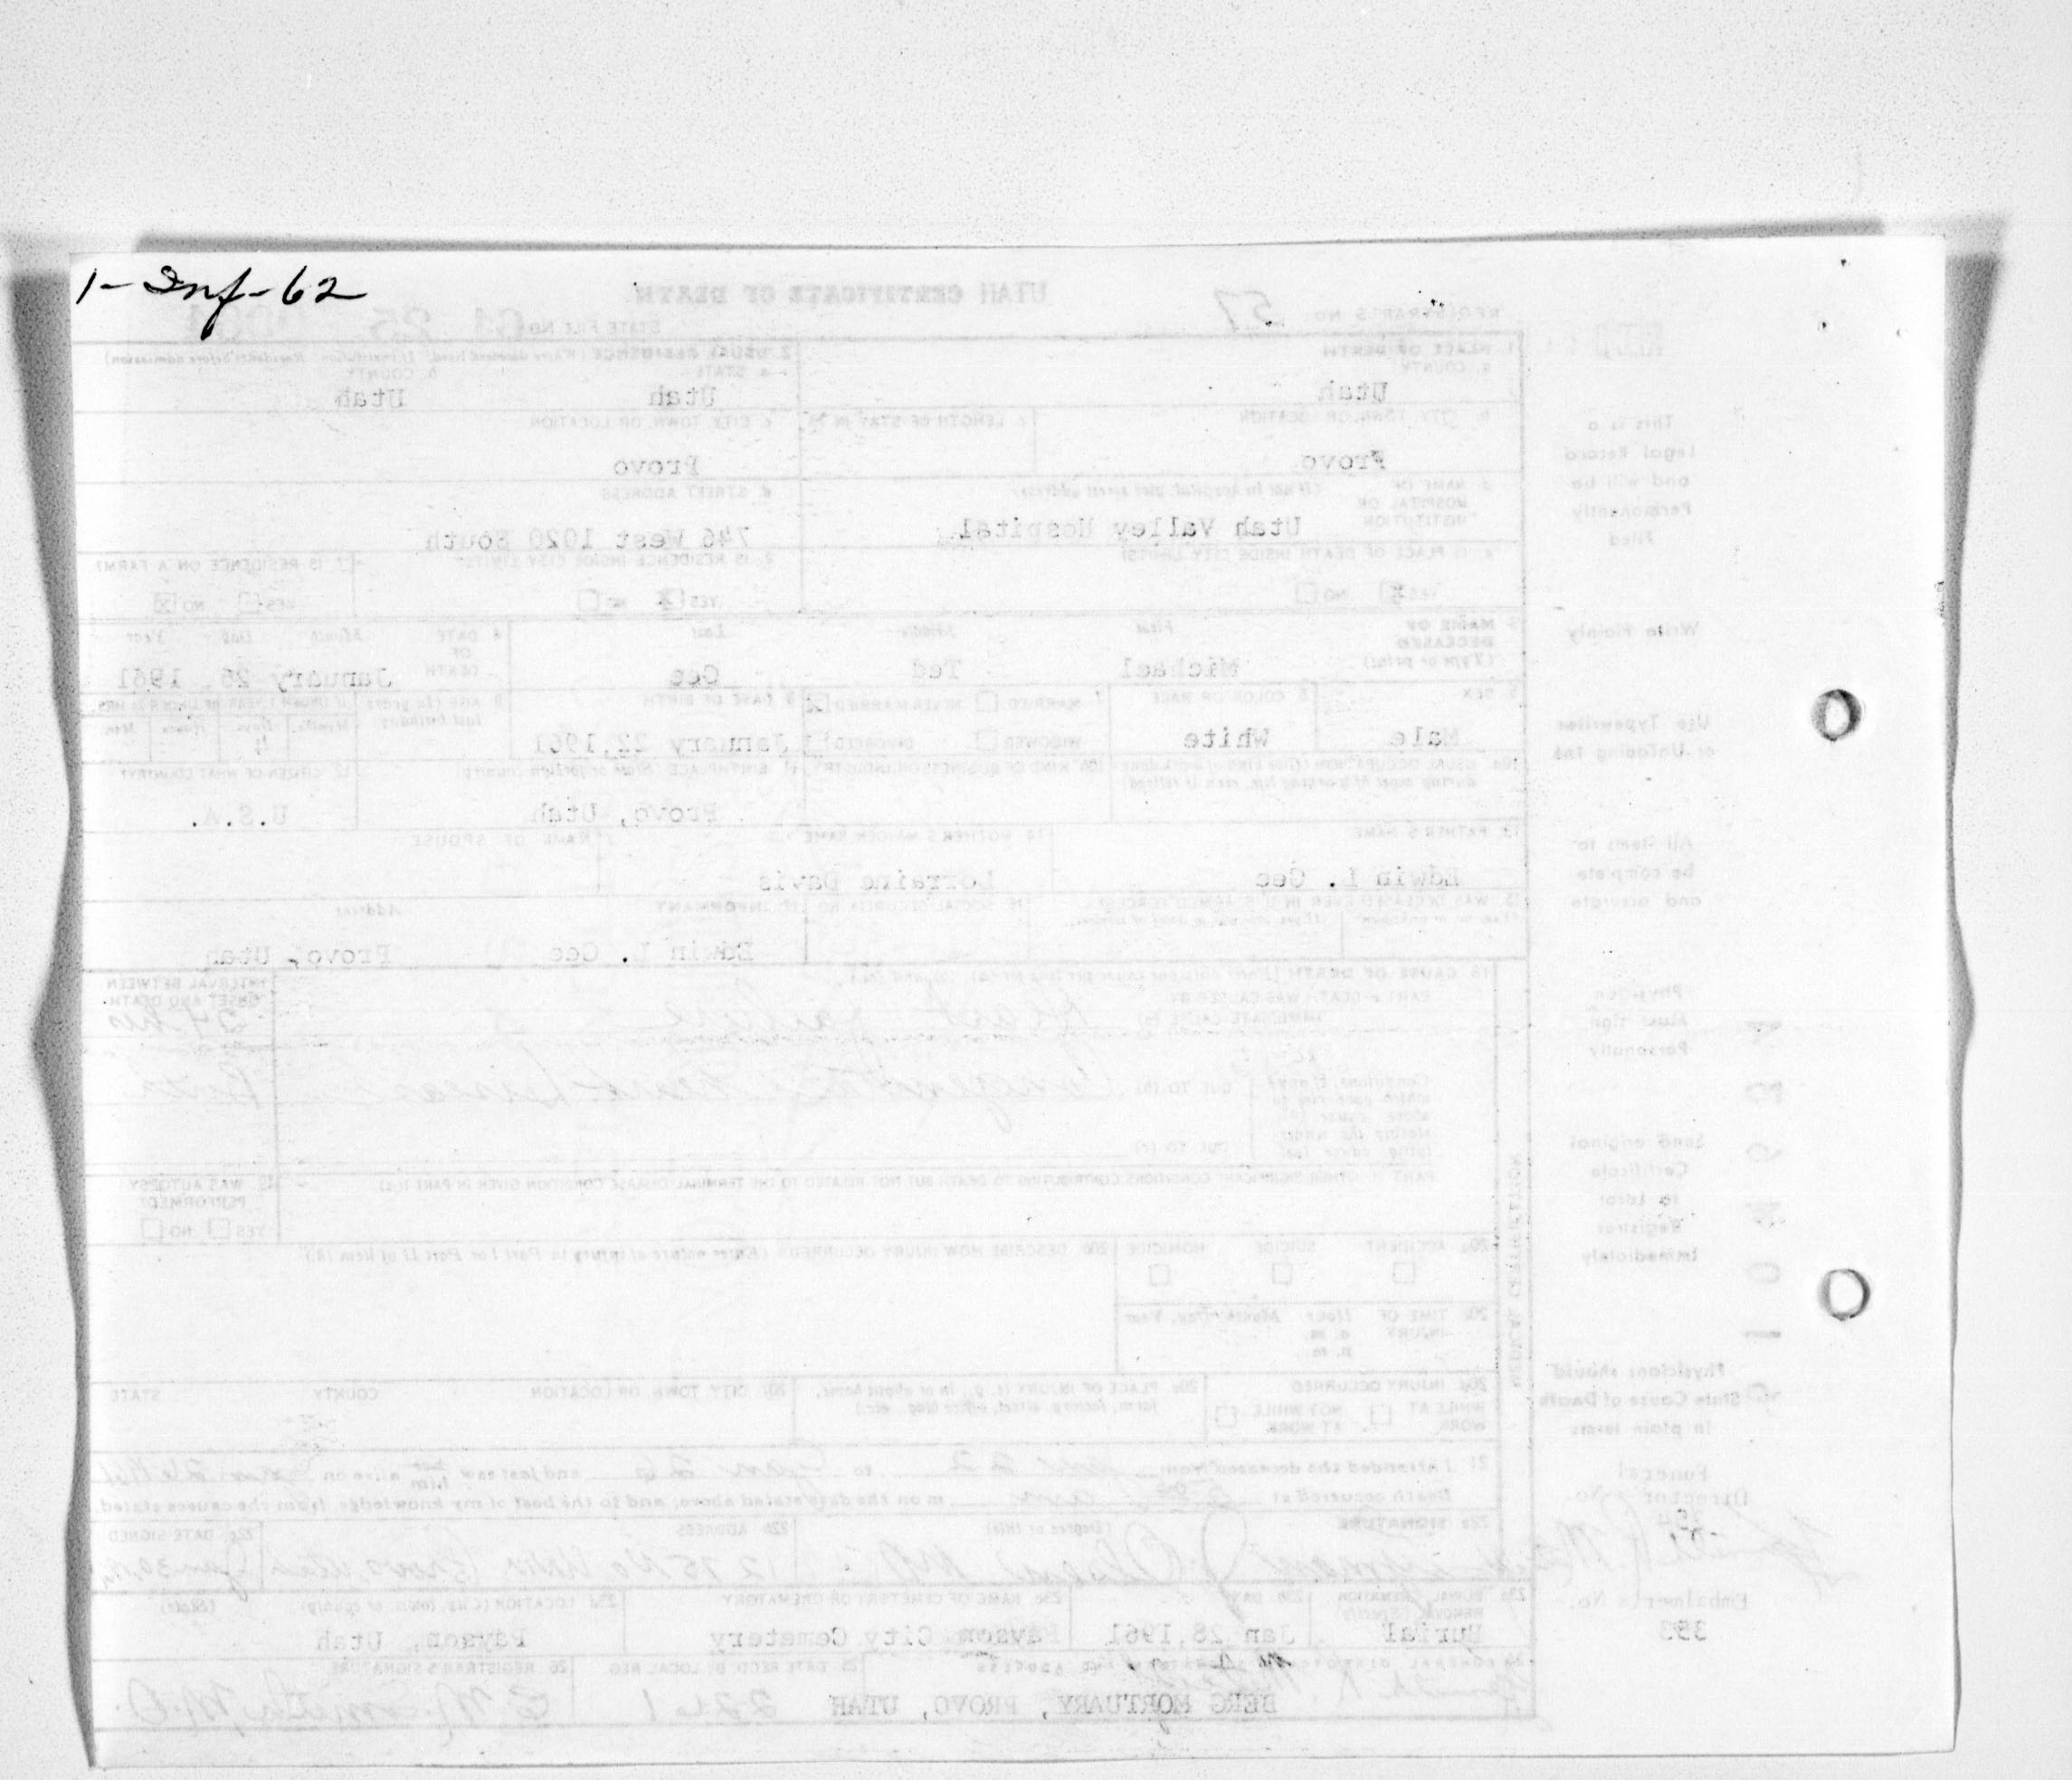 1-Inf-62
UTAH CERTIFICATE OF DEATH
REGISTRAR'S NO. 57
STATE FILE NO. 61 25
1. PLACE OF DEATH
a. COUNTY
Utah
2. USUAL RESIDENCE (Where deceased lived. If institution: Residence before admission)
a. STATE
b. COUNTY
Utah Utah
b. CITY, TOWN, OR LOCATION
c. LENGTH OF STAY IN
Provo
c. CITY, TOWN, OR LOCATION
Provo
d. NAME OF HOSPITAL OR INSTITUTION (If not in hospital, give street address)
Utah Valley Hospital
d. STREET ADDRESS
746 West 1020 South
e. IS PLACE OF DEATH INSIDE CITY LIMITS?
YES NO
e. IS RESIDENCE INSIDE CITY LIMITS?
YES NO
f. IS RESIDENCE ON A FARM?
YES NO
3. NAME OF DECEASED (Type or print)
First Middle Last
Michael Ted Gee
4. DATE OF DEATH
Month Day Year
January 26, 1961
5. SEX
Male
6. COLOR OR RACE
White
7. MARRIED NEVER MARRIED
WIDOWED DIVORCED
8. DATE OF BIRTH
January 22, 1961
9. AGE (In years last birthday)
IF UNDER 1 YEAR IF UNDER 24 HRS.
Months Days Hours Min.
4
10a. USUAL OCCUPATION (Give kind of work done during most of working life, even if retired)
10b. KIND OF BUSINESS OR INDUSTRY
11. BIRTHPLACE (State or foreign country)
Provo, Utah
12. CITIZEN OF WHAT COUNTRY?
U.S.A.
13. FATHER'S NAME
Edwin L. Gee
14. MOTHER'S MAIDEN NAME
Lorraine Davis
NAME OF SPOUSE
15. WAS DECEASED EVER IN U. S. ARMED FORCES?
16. SOCIAL SECURITY NO.
17. INFORMANT Address
Edwin L. Gee Provo, Utah
18. CAUSE OF DEATH [Enter only one cause per line for (a), (b), and (c).]
PART I. DEATH WAS CAUSED BY:
IMMEDIATE CAUSE (a) Heart Failure
INTERVAL BETWEEN ONSET AND DEATH
24 hrs
Conditions, if any, which gave rise to above cause (a) stating the underlying cause last.
DUE TO (b) Congenital Heart disease Birth
DUE TO (c)
PART II. OTHER SIGNIFICANT CONDITIONS CONTRIBUTING TO DEATH BUT NOT RELATED TO THE TERMINAL DISEASE CONDITION GIVEN IN PART I(a)
19. WAS AUTOPSY PERFORMED?
YES NO
20a. ACCIDENT SUICIDE HOMICIDE
20b. DESCRIBE HOW INJURY OCCURRED (Enter nature of injury in Part I or Part II of item 18.)
20c. TIME OF INJURY Hour Month, Day, Year
a. m.
p. m.
20d. INJURY OCCURRED
WHILE AT WORK NOT WHILE AT WORK
20e. PLACE OF INJURY (e. g., in or about home, farm, factory, street, office bldg., etc.)
20f. CITY, TOWN, OR LOCATION COUNTY STATE
21. I attended the deceased from Jan 22 to Jan 26 and last saw him alive on Jan 26 1961
Death occurred at m on the date stated above; and to the best of my knowledge, from the causes stated.
22a. SIGNATURE (Degree or title)
22b. ADDRESS
1275 No Univ. Provo, Utah
22c. DATE SIGNED
Jan 30, 61
23a. BURIAL, CREMATION, REMOVAL (Specify)
Burial
23b. DAY
Jan 28, 1961
23c. NAME OF CEMETERY OR CREMATORY
Payson City Cemetery
23d. LOCATION (City, town, or county) (State)
Payson, Utah
24. FUNERAL DIRECTOR'S SIGNATURE AND ADDRESS
BERG MORTUARY, PROVO, UTAH
25. DATE RECD. BY LOCAL REG.
26. REGISTRAR'S SIGNATURE
MEDICAL CERTIFICATION
This is a
Legal Record
and will be
Permanently
Filed
Write Plainly
Use Typewriter
or Unfading Ink
All items to
be complete
and accurate
Physician
Must sign
Personally
Send original
Certificate
to Local
Registrar
Immediately
Physicians should
State Cause of Death
in plain terms
Funeral
Director's No.
Embalmer's No.
353